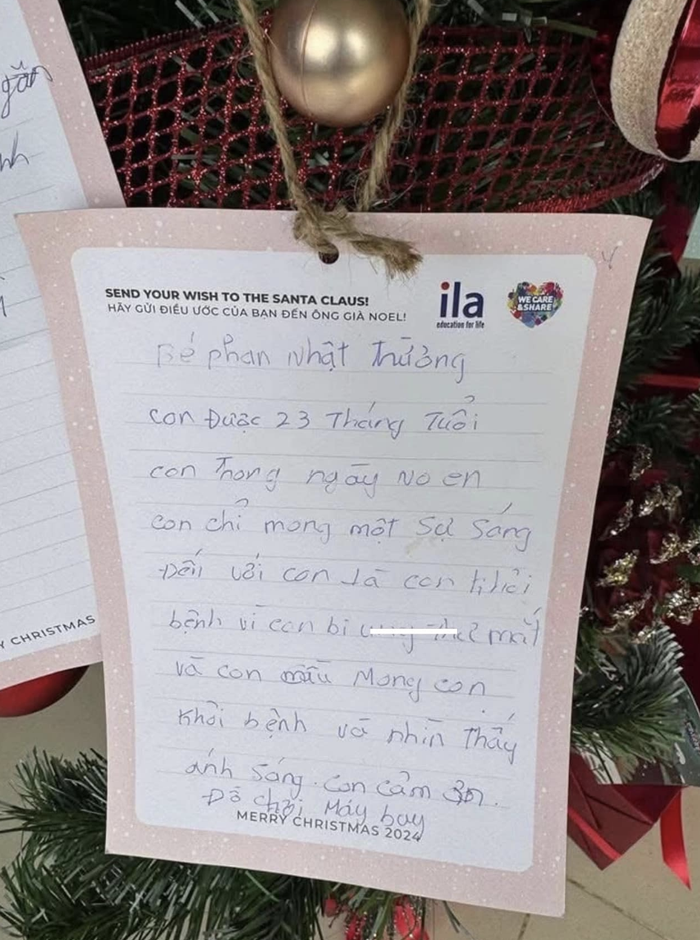 găn
nh
Y CHRISTMAS
SEND YOUR WISH TO THE SANTA CLAUS!
HÃY GỬI ĐIỀU ƯỚC CỦA BẠN ĐẾN ÔNG GIÀ NOEL!
ila
education for life
WE CARE
&SHARE
Bé phan Nhật Thưởng
con Được 23 Tháng Tuổi
con Trong ngày No en
con chỉ mong một Sự Sáng
Đến với con là con khỏi
bệnh vì con bị mắt
và con mẫu Mong con
khỏi bệnh và nhìn Thấy
ánh Sáng. Con cảm ơn.
Đồ chơi Máy bay
MERRY CHRISTMAS 2024